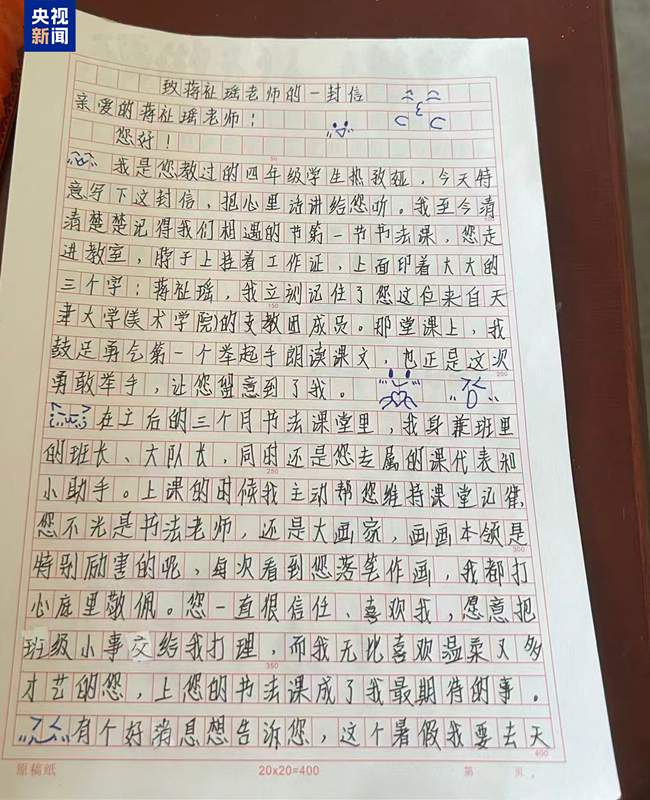 央视
新闻
致蒋祉瑶老师的一封信
亲爱的蒋祉瑶老师：
您好！
50
我是您教过的四年级学生热孜娅，今天特
意写下这封信，把心里话讲给您听。我至今清
清楚楚记得我们相遇的节第一节书法课，您走
进教室，脖子上挂着工作证，上面印着大大的
三个字：蒋祉瑶，我立刻记住了您这位来自天
150
津大学(美术学院)的支教团成员。那堂课上，我
鼓足勇气第一个举起手朗读课文，也正是这次
200
勇敢举手，让您留意到了我。
在工后的三个月书法课堂里，我身兼班里
的班长、大队长，同时还是您专属的课代表和
250
小助手。上课的时候我主动帮您维持课堂记律，
您不光是书法老师，还是大画家，画画本领是
300
特别励害的呢，每次看到您落笔作画，我都打
心底里敬佩。您一直很信任、喜欢我，愿意把
班级小事交给我打理，而我无比喜欢温柔又多
350
才艺的您，上您的书法课成了我最期待的事。
有个好消息想告诉您，这个暑假我要去天
400
原稿纸 20x20=400 第 页